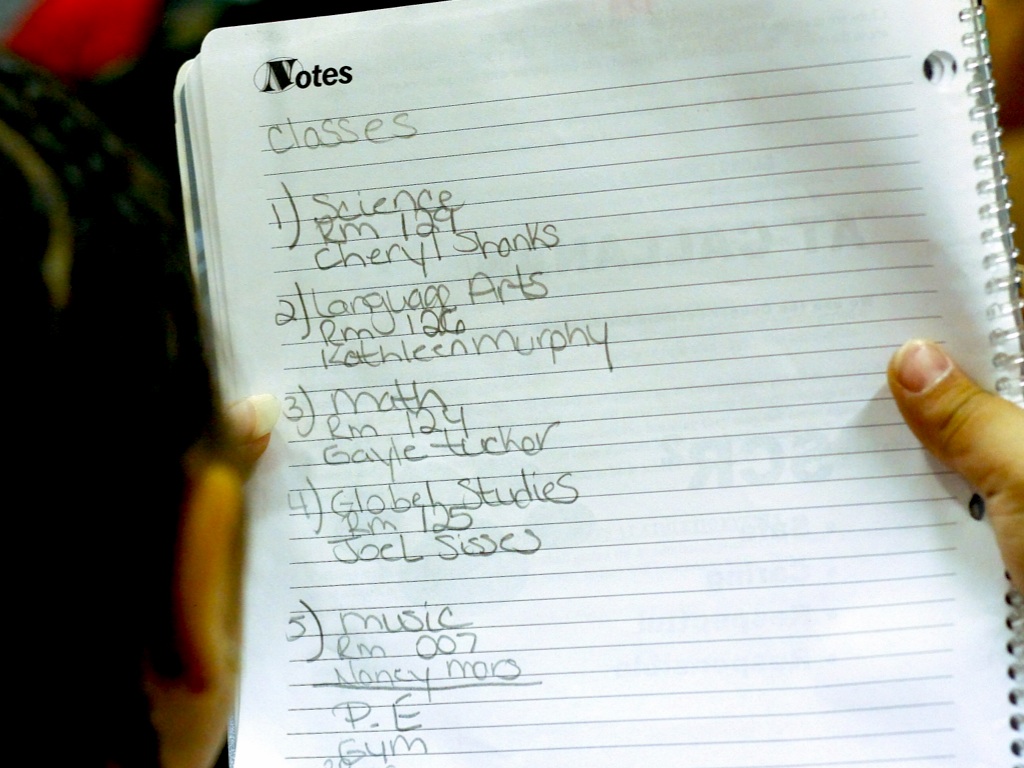 Notes
Classes
1) Science
Rm 129
Cheryl Shanks
2) Language Arts
Rm 126
Kathleen Murphy
3) Math
Rm 124
Gayle Tucker
4) Global Studies
Rm 125
Joel Sisses
5) Music
Rm 007
Nancy Mars
P.E
Gym